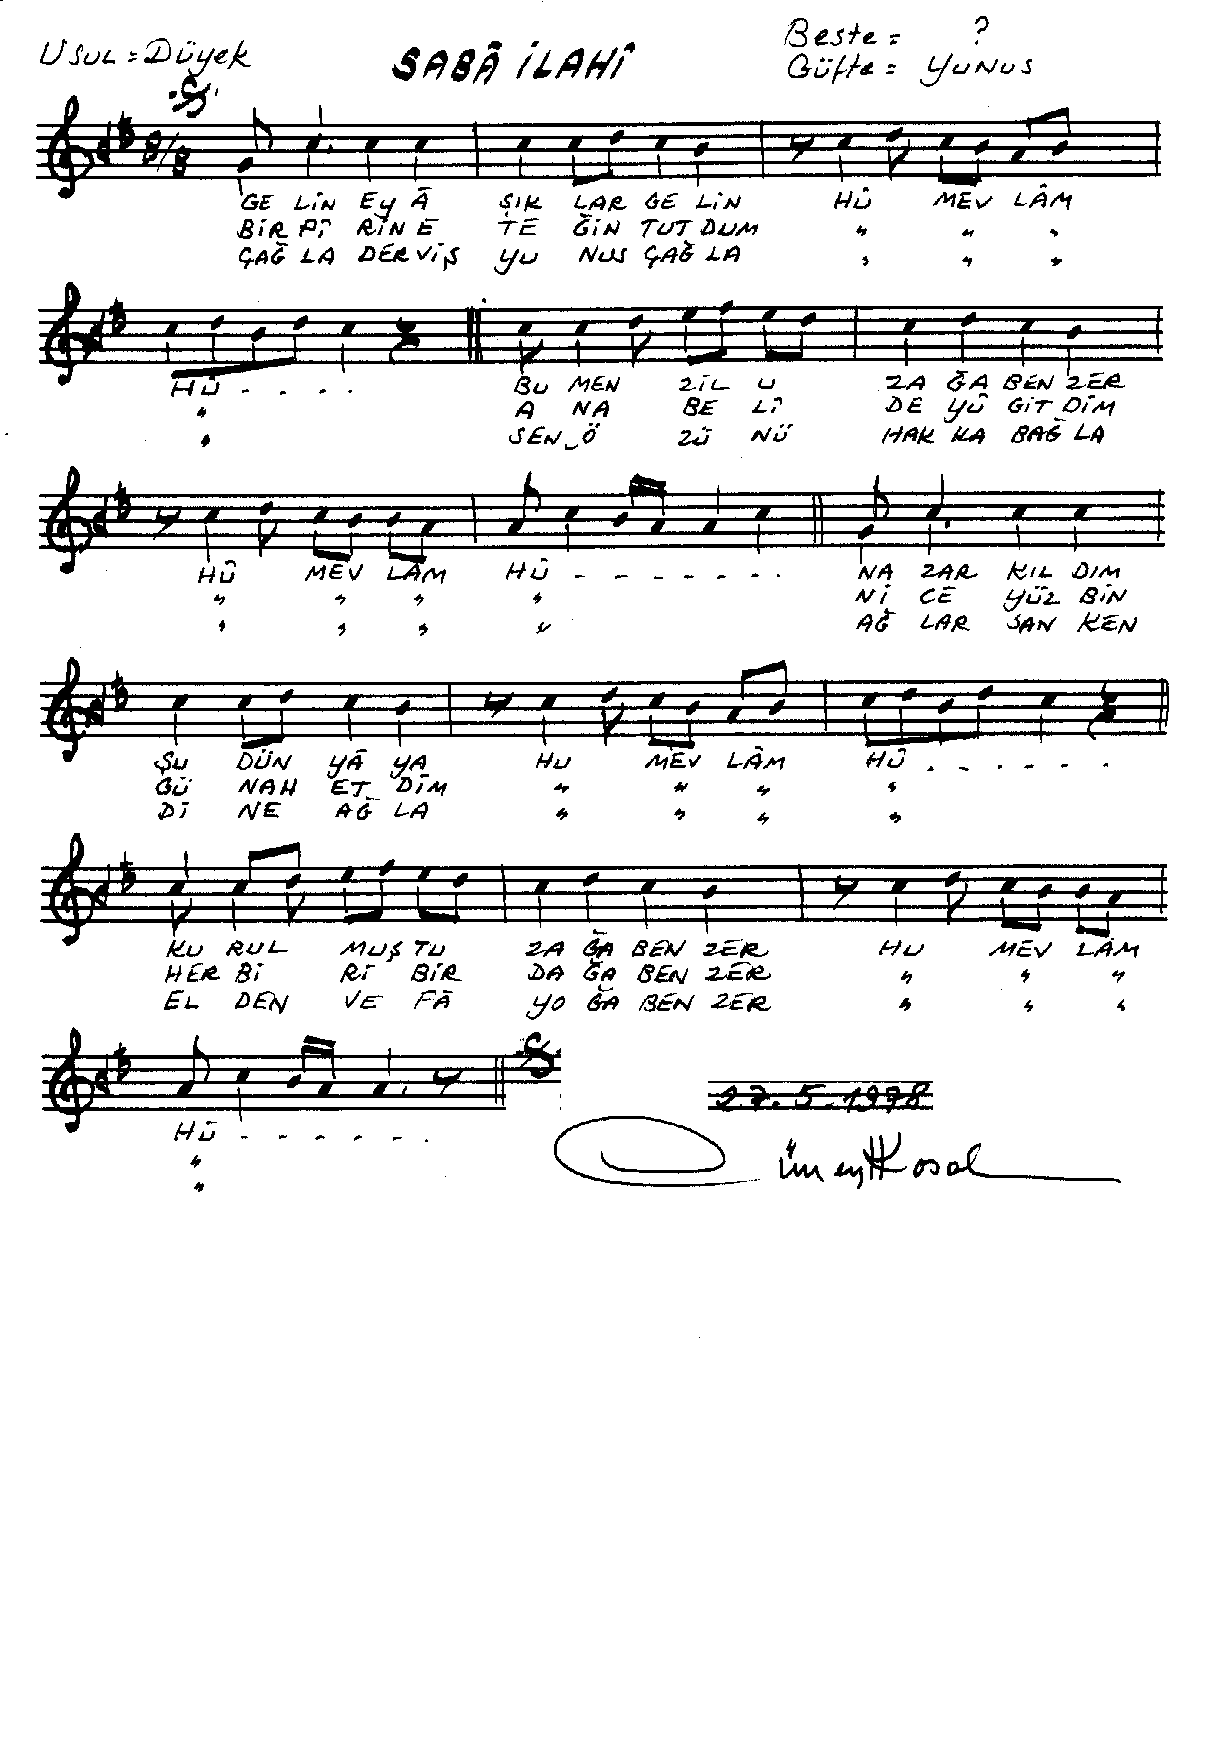 Usul = Düyek
SABÂ İLAHÎ
Beste = ?
Güfte = YUNUS
8/8
GE LİN EY Â ŞIK LAR GE LİN HÛ MEV LÂM
BİR PÎ RİN E TE ĞİN TUT DUM " " "
ÇAĞ LA DER VİŞ YU NUS ÇAĞ LA " " "
HÛ - - - . BU MEN ZİL U ZA ĞA BEN ZER
" A NA BE LÎ DE YÛ GİT DİM
" SEN Ö ZÜ NÜ HAK KA BAĞ LA
HÛ MEV LÂM HÛ - - - - - - . NA ZAR KIL DIM
" " " " Nİ CE YÜZ BİN
" " " " AĞ LAR SAN KEN
ŞU DÜN YÂ YA HU MEV LÂM HÛ . - - - - .
GÜ NAH ET DİM " " " "
DÎ NE AĞ LA " " " "
KU RUL MUŞ TU ZA ĞA BEN ZER HU MEV LÂM
HER BÎ Rİ BİR DA ĞA BEN ZER " " "
EL DEN VE FÂ YO ĞA BEN ZER " " "
HÛ - - - - - .
"
"
27.5.1978
Cüneyt Kosal